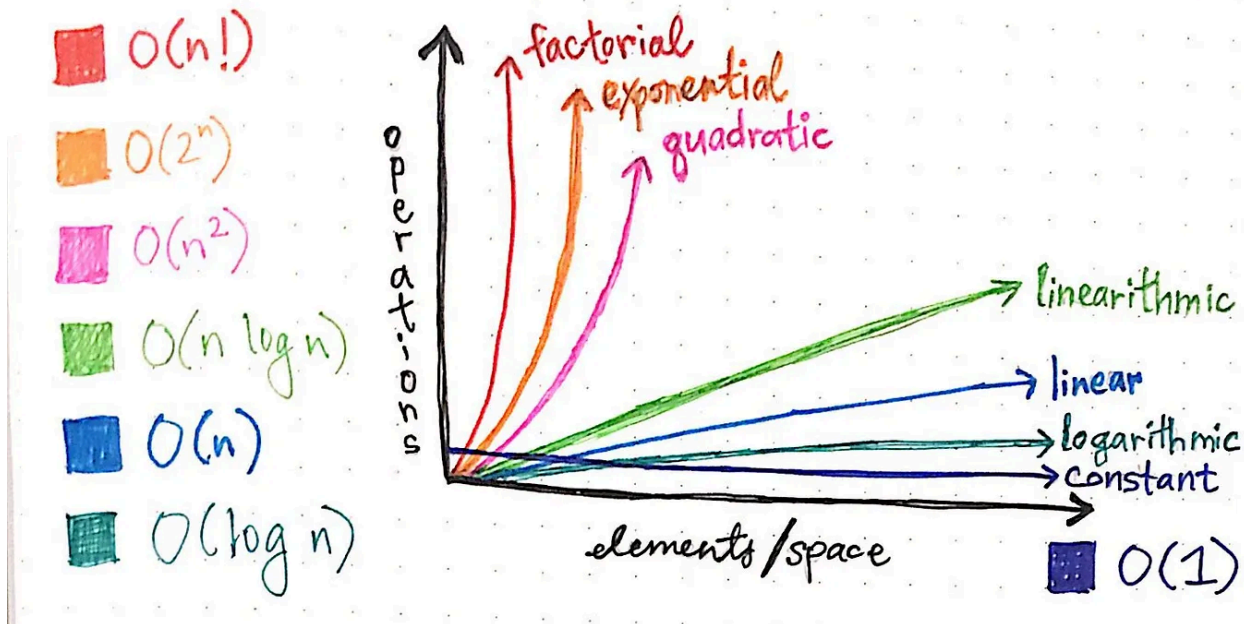 O(n!)
O(2ⁿ)
O(n²)
O(n log n)
O(n)
O(log n)
operations
factorial
exponential
quadratic
linearithmic
linear
logarithmic
constant
elements/space
O(1)